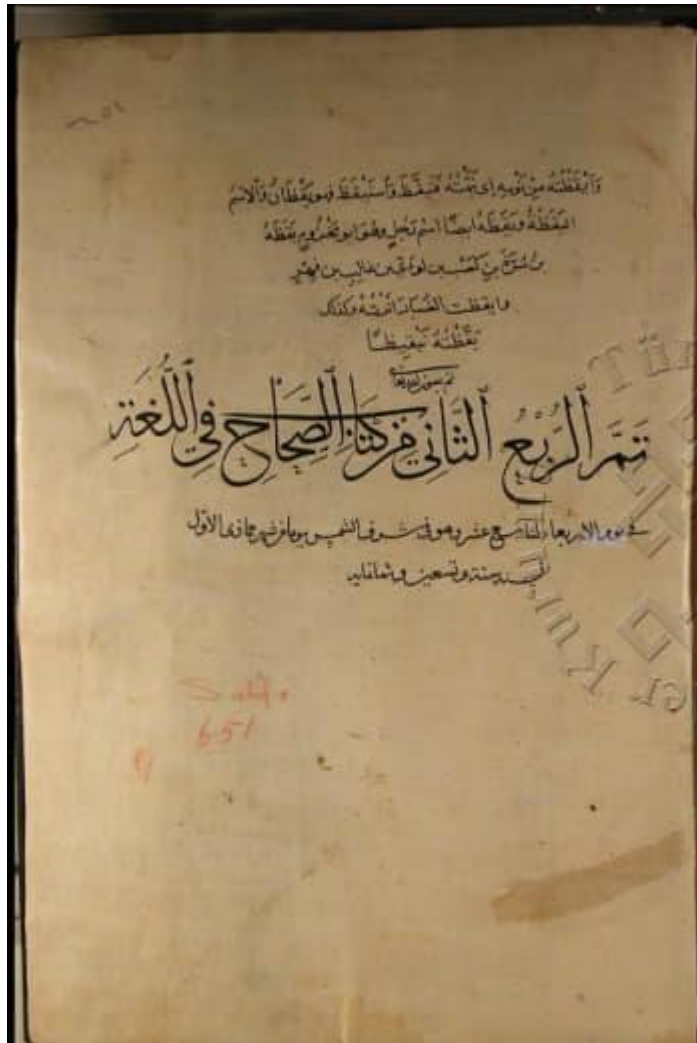 وَأَيْقَظْتُهُ مِنْ نَوْمِهِ اى نَبَّهْتُهُ فَتَيَقَّظَ وَٱسْتَيْقَظَ فهو يَقْظَانٌ وَٱلاِسْمُ
اليَقَظَةُ وَيَقَظَةُ ايضًا اسْمُ رَجُلٍ وهُوَ ابو مَخْزُومٍ يَقَظَةُ
بن مُرَّةَ بن كَعْب بن لُؤَىّ بن غالِب بن فِهْرٍ
وايقظت الغُبار اثرته وكذلك
يَقَّظْتُهُ تَيْقِيظًا
تَمَّ ٱلرُّبْعُ ٱلثَّانِي مِنْ كِتَابِ ٱلصِّحَاحِ فِي ٱللُّغَةِ
فى يوم الاربعاء التاسع عشر وهو فى شرف الشمس يوما من شهر جمادى الاول
لسنة ستة وتسعين وثمانمايه
651